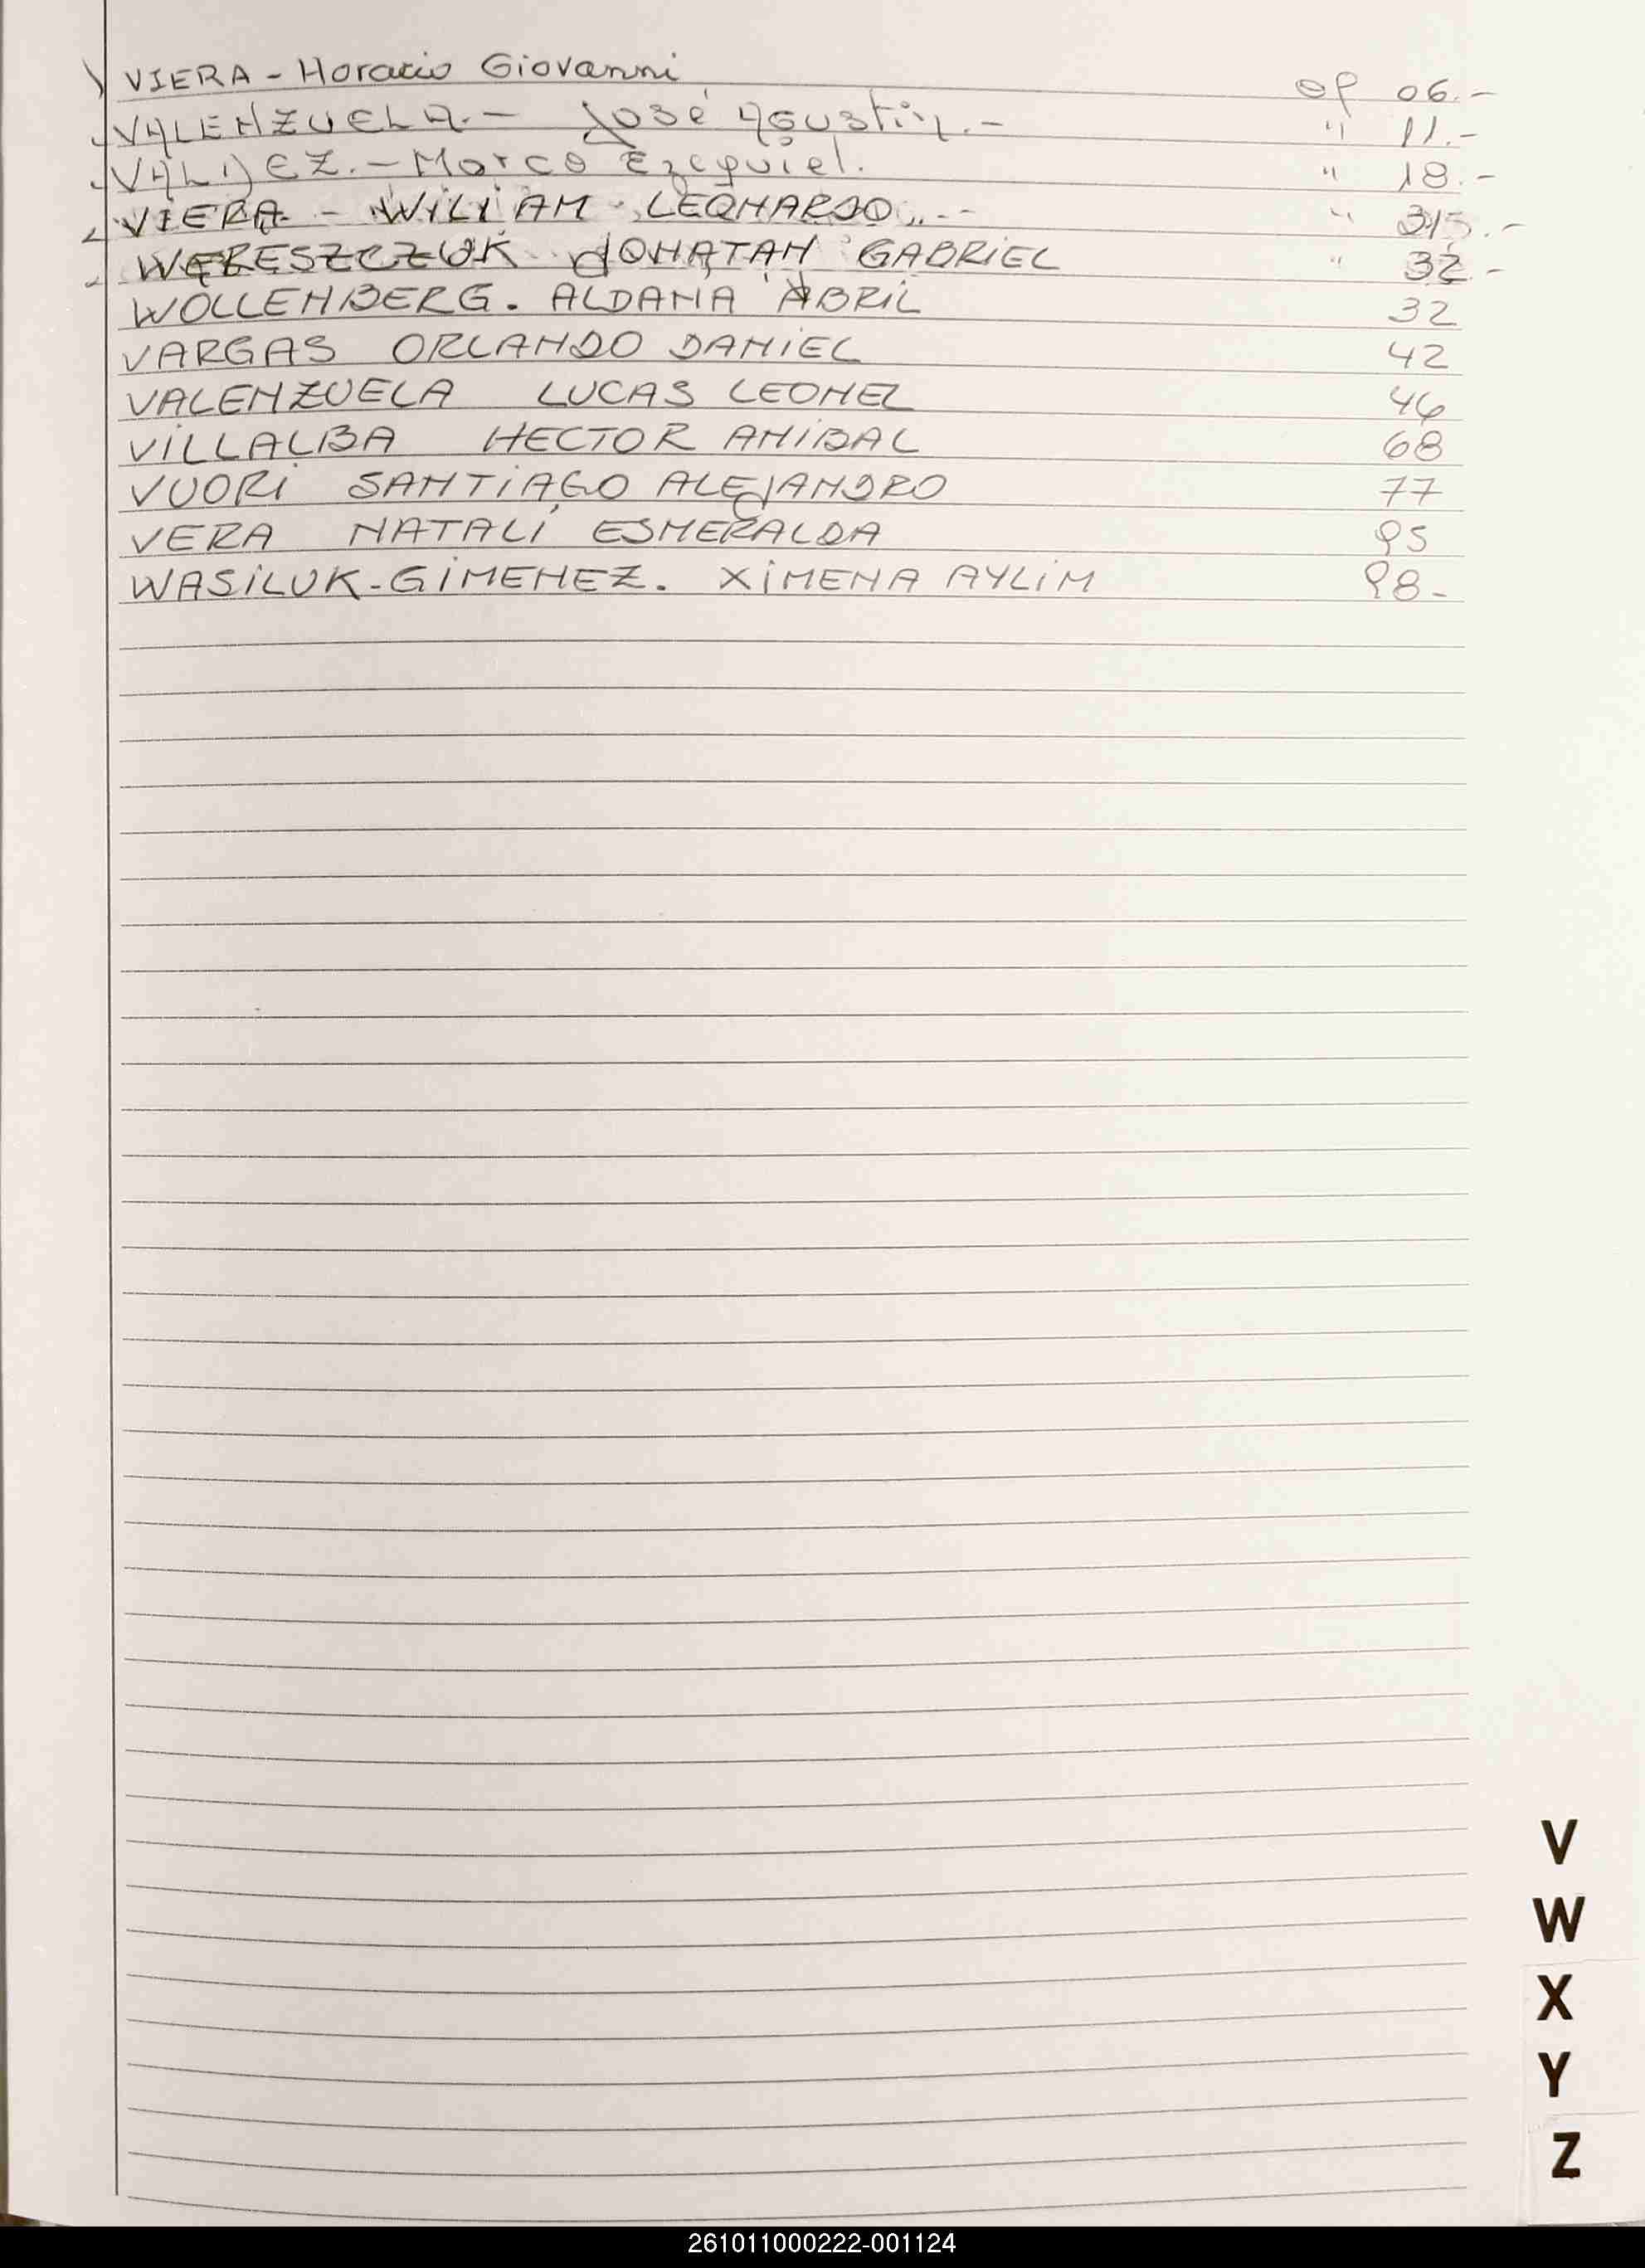 VIERA - Horacio Giovanni of 06.-
VALENZUELA.- José Agustin.- " 11.-
VALDEZ.- Marco Ezequiel. " 18.-
VIERA - WILIAM LEONARDO.- " .-
WERESZCZUK JONATAN GABRIEL " 32.-
WOLLENBERG. ALDANA ABRIL 32
VARGAS ORLANDO DANIEL 42
VALENZUELA LUCAS LEONEL 46
VILLALBA HECTOR ANIBAL 68
VUORI SANTIAGO ALEJANDRO 77
VERA NATALI ESMERALDA 95
WASILUK-GIMENEZ. XIMENA AYLIM 98-
V
W
X
Y
Z
261011000222-001124